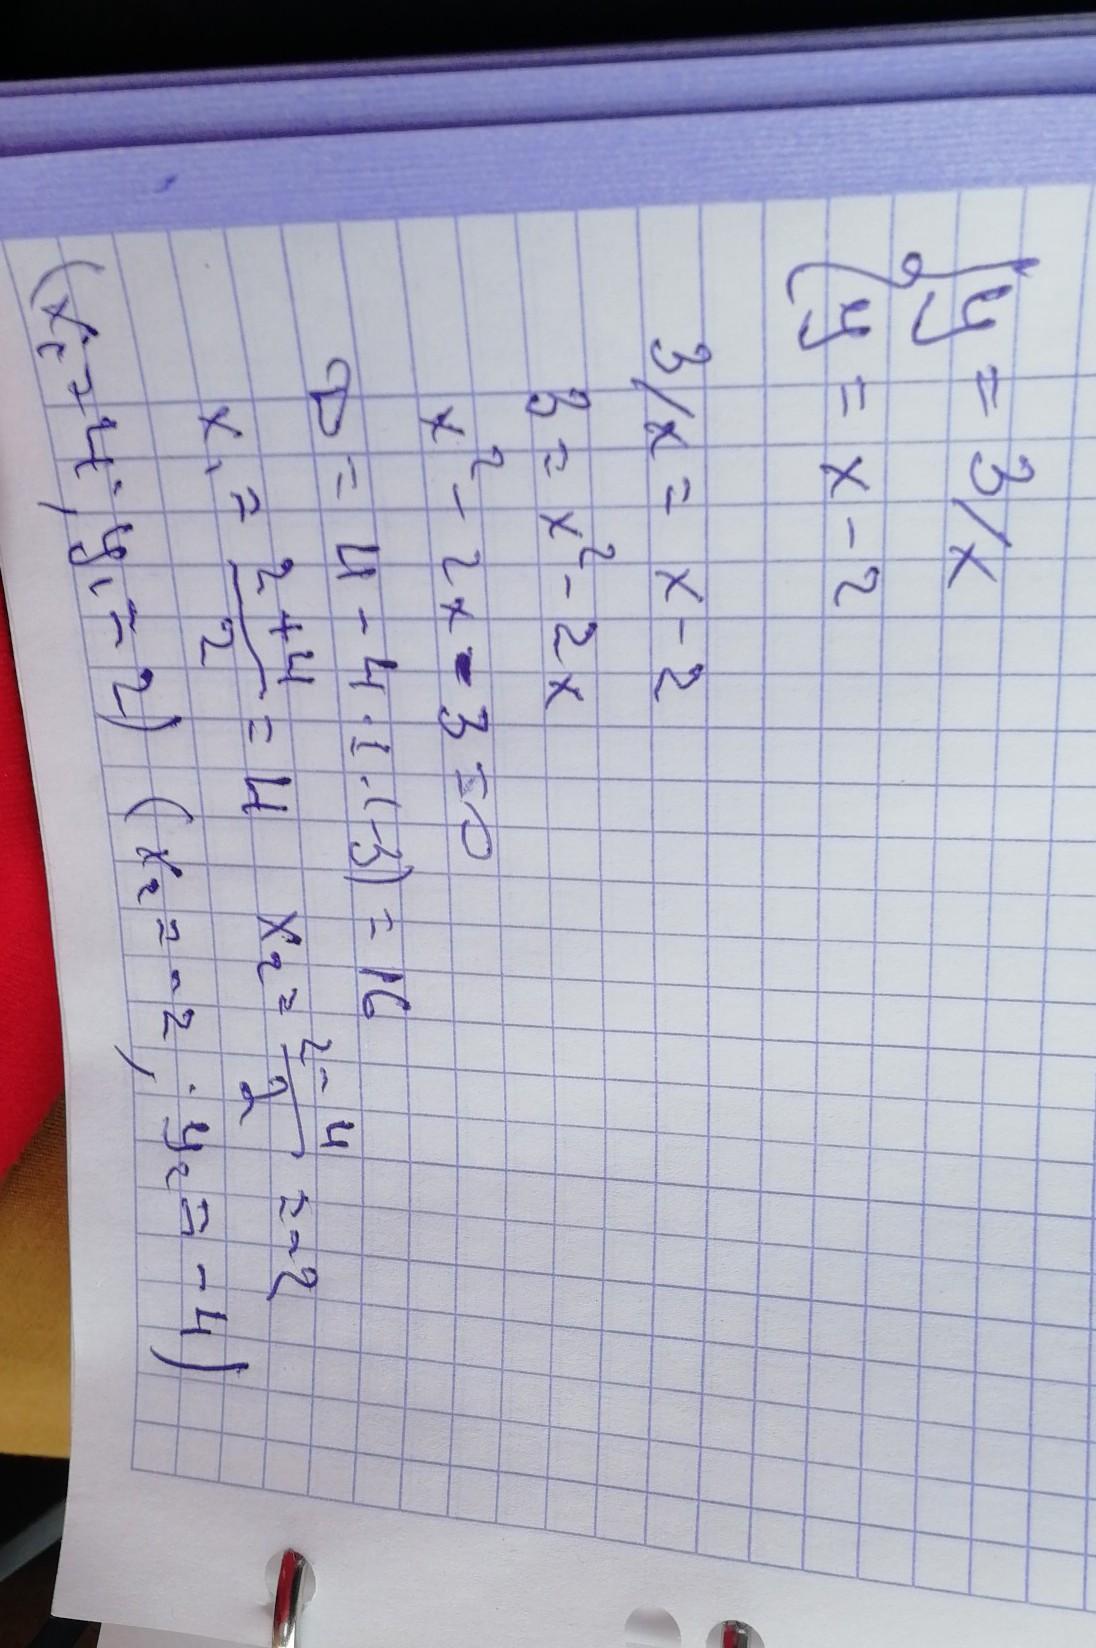 { y = 3/x
y = x - 2
3/x = x - 2
3 = x² - 2x
x² - 2x - 3 = 0
D = 4 - 4 · 1 · (-3) = 16
x₁ = (2+4)/2 = 4 x₂ = (2-4)/2 = -2
(x₁ = 4; y₁ = 2) (x₂ = -2; y₂ = -4)